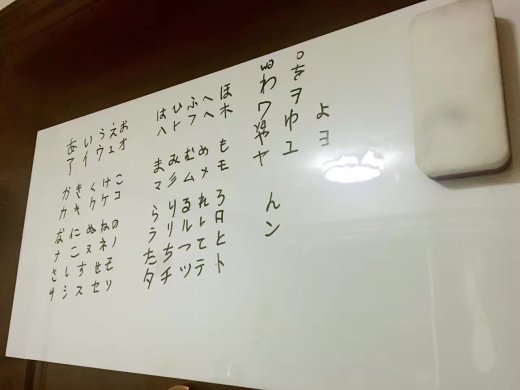 あいうえお
アイウエオ
かきくけこ
カキクケコ
なにぬねの
ナニヌネノ
さしすせそ
サシスセソ
はひふへほ
ハヒフヘホ
まみむめも
マミムメモ
らりるれろ
ラリルレロ
たちつてと
タチツテト
わを
ワヲ
ゆよ
ヤユヨ
ん
ン